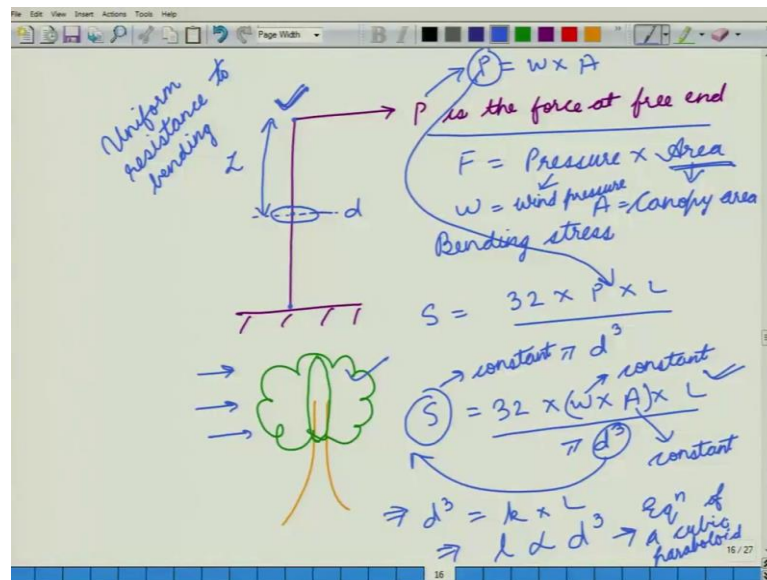 File Edit View Insert Actions Tools Help
Page Width
B I
Uniform
resistance to
bending
L
d
P = W x A
P is the force at free end
F = Pressure x Area
W = wind pressure A = Canopy area
Bending stress
S = 32 x P x L
π d³
constant
constant
S = 32 x (W x A) x L
π d³
constant
⇒ d³ = k x L
⇒ l ∝ d³ → Eqⁿ of
a cubic
paraboloid
16 / 27
16